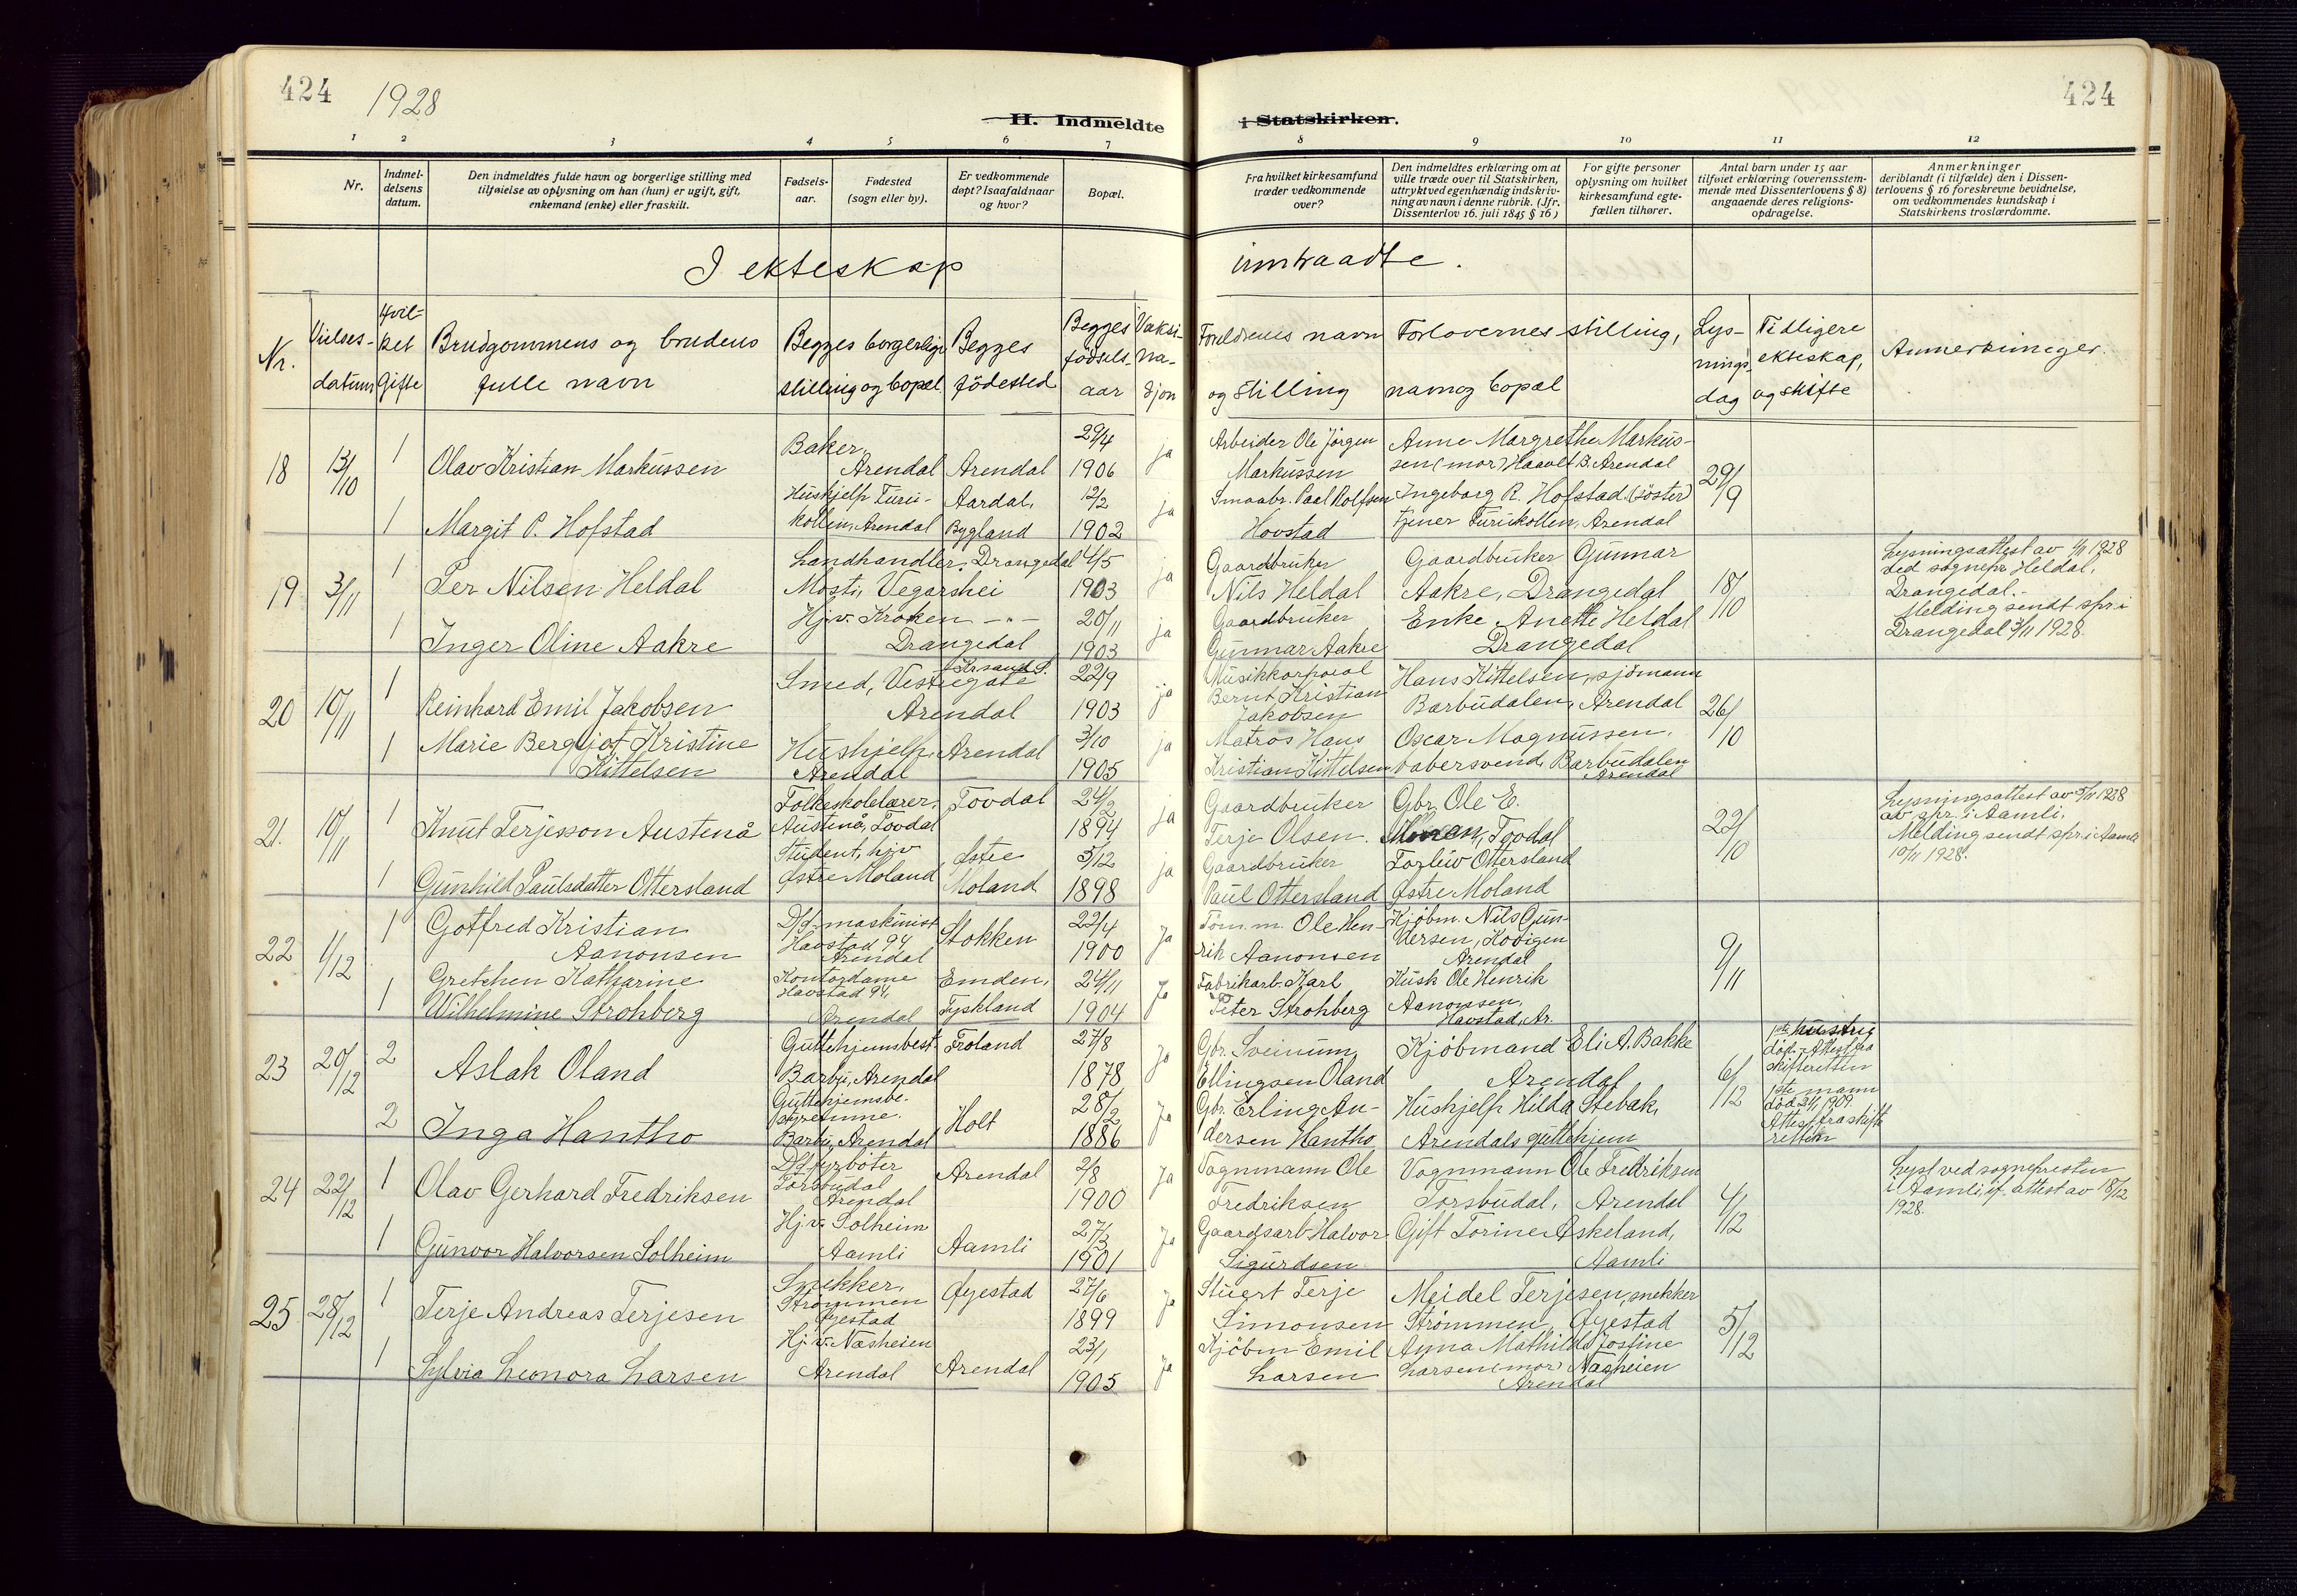 424
1928
424
H. Indmeldte
i Statskirken.
1 2 3 4 5 6 7 8 9 10 11 12
Nr.
Indmel-
delsens
datum.
Den indmeldtes fulde navn og borgerlige stilling med
tilføielse av oplysning om han (hun) er ugift, gift,
enkemand (enke) eller fraskilt.
Fødsels-
aar.
Fødested
(sogn eller by).
Er vedkommende
døpt? Isaafald naar
og hvor?
Bopæl.
Fra hvilket kirkesamfund
træder vedkommende
over?
Den indmeldtes erklæring om at
ville træde over til Statskirken,
uttrykt ved egenhændig indskriv-
ning av navn i denne rubrik. (Jfr.
Dissenterlov 16. juli 1845 § 16)
For gifte personer
oplysning om hvilket
kirkesamfund egte-
fællen tilhører.
Antal barn under 15 aar
tilføiet erklæring (overensstem-
mende med Dissenterlovens § 8)
angaaende deres religions-
opdragelse.
Anmerkninger
deriblandt (i tilfælde) den i Dissen-
terlovens § 16 foreskrevne bevidnelse,
om vedkommendes kundskap i
Statskirkens troslærdomme.
I ekteskap
inntraadte.
Nr.
Vielses-
datum
Hvil-
ket
Gifte
Brudgommens og brudens
fulle navn
Begges borgerlige
stilling og bopæl.
Begges
fødested
Begges
fødsels-
aar
Vaksi-
na-
sjon
Foreldrenes navn
og stilling
Forlovernes stilling,
navn og bopæl
Lys-
nings-
dag
Tidligere
ekteskap,
og skifte
Anmerkninger.
18
13/10
1
Olav Kristian Markussen
Baker,
Arendal
Arendal
29/4
1906
ja
Arbeider Ole Jörgen
Markussen
Anne Margrethe Markus-
sen (mor) Haavet B. Arendal
29/9
1
Margit P. Hofstad
Hushjelp Furu-
kollen, Arendal
Aardal,
Bygland
12/2
1902
ja
Smaabr. Paal Rolfsen
Hovstad
Ingeborg R. Hofstad (söster)
tjener Furukollen, Arendal
19
3/11
1
Per Nilsen Heldal
Landhandler,
Mosti, Vegarshei
Drangedal
4/5
1903
ja
Gaardbruker
Nils Heldal
Gaardbruker Gunnar
Aakre, Drangedal
18/10
Lysningsattest av 1/11 1928
ved sognepr. Heldal,
Drangedal.-
Melding sendt spr. i
Drangedal 3/11 1928.
1
Inger Oline Aakre
Hj.v. Kroken
Drangedal
- " -
20/11
1903
ja
Gaardbruker
Gunnar Aakre
Enke Anette Heldal
Drangedal
20
10/11
1
Reinhard Emil Jakobsen
Smed, Vestregate
Arendal
Krsand S.
22/9
1903
ja
Musikkorporal
Bernt Kristian
Jakobsen
Hans Kittelsen, sjömann
Barbudalen, Arendal
26/10
1
Marie Bergljot Kristine
Kittelsen
Hushjelp,
Arendal
Arendal
3/10
1905
ja
Matros Hans
Kristian Kittelsen
Oscar Magnussen,
Barbudalen
Arendal
21.
10/11
1
Knut Terjesson Austenå
Folkeskolelærer,
Austenå, Tovdal
Tovdal
24/2
1894
ja
Gaardbruker
Terje Olsen.
Gbr. Ole E.
Tovdal
22/10
Lysningsattest av 5/11 1928
av spr. i Aamli.
Melding sendt spr. i Aamli
10/11 1928.
1
Gunhild Paulsdatter Ottersland
Student, hjv
Østre Moland
Østre
Moland
5/12
1898
ja
Gaardbruker
Paul Ottersland
Torleiv Ottersland
Østre Moland
22
1/12
1
Gotfred Kristian
Aanonsen
D/s-maskinist
Havstad 94
Arendal
Stokken
22/4
1900
Ja
Töm.m. Ole Hen-
rik Aanonsen
Kjöbm. Nils Gun-
Arendal
9/11
1
Gretchen Katharine
Wilhelmine Strohberg
Kontordame
Havstad 94,
Arendal
Emden,
Tyskland
24/11
1904
Ja
Fabrikarb. Karl
Peter Strohberg
Husk Ole Henrik
Aanonssen,
Havstad, Ar.
23
20/12
2
Aslak Oland
Guttehjemsbest.
Barbu, Arendal
Froland
27/8
1878
Ja
Gbr. Sveinum
Ellingsen Oland
Kjöbmand Eli A. Bakke
Arendal
6/12
1ste hustru
död. Attest fra
skifteretten
2
Inga Hantho
Guttehjemsbe-
styrerinne.
Barbu, Arendal
Holt
28/2
1886
Ja
Gbr. Erling An-
dersen Hantho
Hushjelp Hilda Stebak,
Arendals guttehjem
1ste mann
1909.
Attest fra skifte
retten
24
22/12
1
Olav Gerhard Fredriksen
D/s fyrböter
Torsbudal
Arendal
Arendal
2/8
1900
Ja
Vognmann Ole
Fredriksen
Vognmann Ole Fredriksen
Torsbudal, Arendal
4/12
Lyst ved sognepresten
i Aamli, if. attest av 18/12
1928.
1
Gunvor Halvorsen Solheim
Hj.v. Solheim
Aamli
Aamli
27/3
1901
Ja
Gaardsarb. Halvor
Sigurdsen
Gift Torine Askeland,
Aamli
25
28/12
1
Terje Andreas Terjesen
Snekker,
Strömmen
Øyestad
Øyestad
27/6
1899
Ja
Stuert Terje
Simonsen
Meidel Terjesen, snekker
Strömmen, Øyestad
5/12
1
Sylvia Leonora Larsen
Hj.v. Næsheien
Arendal
Arendal
23/1
1905
Ja
Kjöbm Emil
Larsen
Anna Mathilde Josfine
Larsen (mor) Næsheien
Arendal